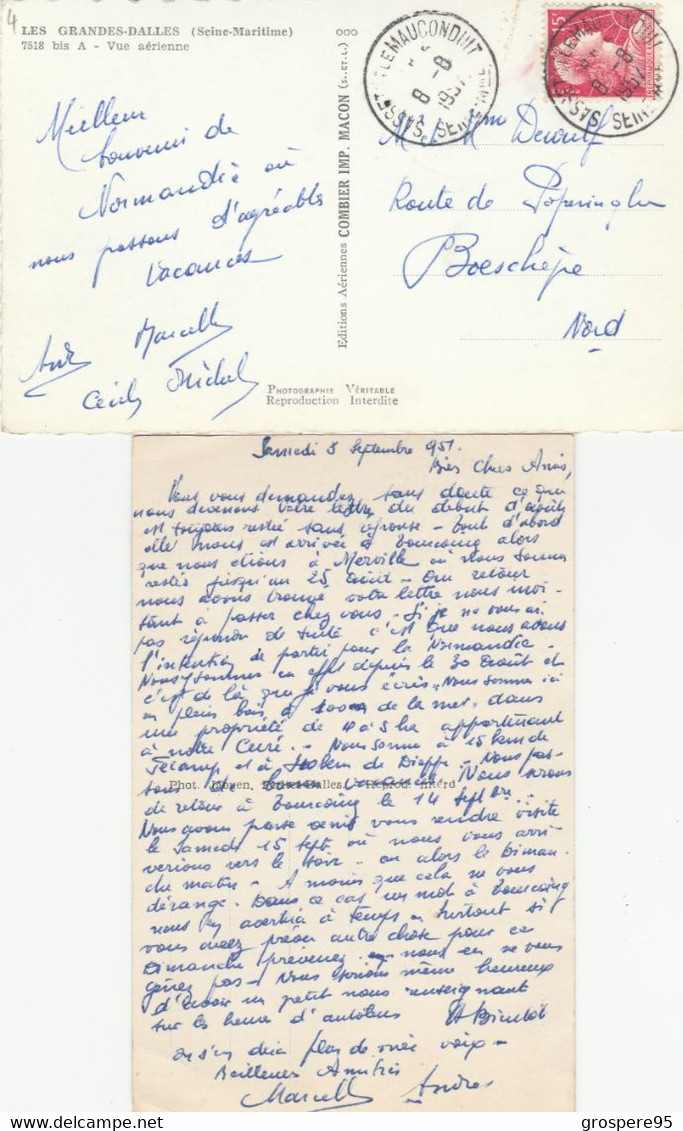 4
LES GRANDES-DALLES (Seine-Maritime)
7518 bis A - Vue aérienne
Meilleur
Souvenir de
Normandie où
nous passons d'agréables
vacances
Marcelle
Cécile Michel
Editions Aériennes COMBIER IMP. MACON (S.-ET-L.)
PHOTOGRAPHIE VÉRITABLE
Reproduction Interdite
SASSETOT LE MAUCONDUIT
8 -8
1957
SEINE MME
15
M. et Mme Dewulf
Route de Poperinghe
Boeschèpe
Nord
Samedi 8 Septembre 1951.
Bien Chers Amis,
Vous vous demandez sans doute ce que
nous devenons votre lettre du début d'août
est toujours restée sans réponse - Tout d'abord
elle nous est arrivée à Tourcoing alors
que nous étions à Merville où nous sommes
restés jusqu'au 25 Août - Au retour
nous avons trouvé votre lettre nous invi-
tant à passer chez vous - Si je ne vous ai
pas répondu de suite c'est que nous avions
l'intention de partir pour la Normandie -
Nous y sommes en effet depuis le 30 Août et
c'est de là que je vous écris. Nous sommes ici
en plein bois, à de la mer, dans
une propriété de 4 à 5 ha appartenant
à notre Curé. - Nous sommes à 15 km de
Fécamp et à de Dieppe - Nous pas-
sons de vacances Nous serons
Phot. Reprod. Interd
de retour à Tourcoing le 14 Septbre. -
Nous avons pensé venir vous rendre visite
le Samedi 15 Septe où nous vous arri-
verions vers le soir - ou alors le Diman-
che matin - A moins que cela ne vous
dérange. Dans ce cas un mot à Tourcoing
nous en avertira à temps - Surtout si
vous avez prévu autre chose pour ce
Dimanche prévenez - nous en ne vous
gênez pas - Nous serions même heureux
d'avoir un petit mot nous renseignant
sur les heures d'autobus A Bientôt
on s'en dira plus de vive voix -
Meilleures Amitiés
Marcelle André
grospere95